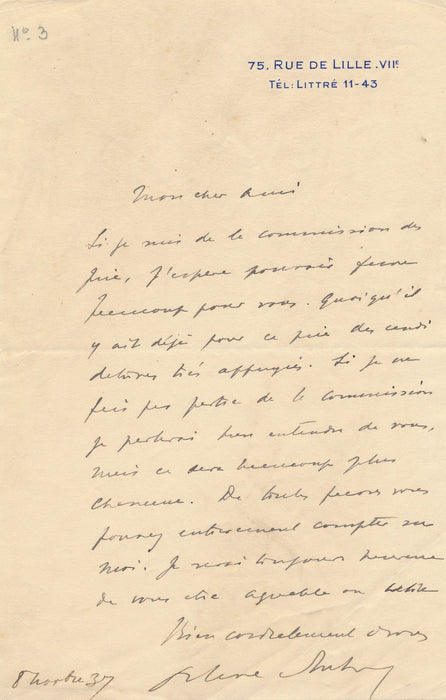 N° 3
75, RUE DE LILLE.VIIE
TÉL: LITTRÉ 11-43
Mon cher ami
Si je suis de la commission des
prix, j'espère pouvoir faire
beaucoup pour vous. Quoiqu'il
y ait déjà pour ce prix des candi
datures très appuyées. Si je ne
fais pas partie de la commission
je parlerai bien entendu de vous,
mais ce sera beaucoup plus
De toutes façons vous
pouvez entièrement compter sur
moi. Je serai toujours heureux
de vous être agréable ou utile
Bien cordialement à vous
37